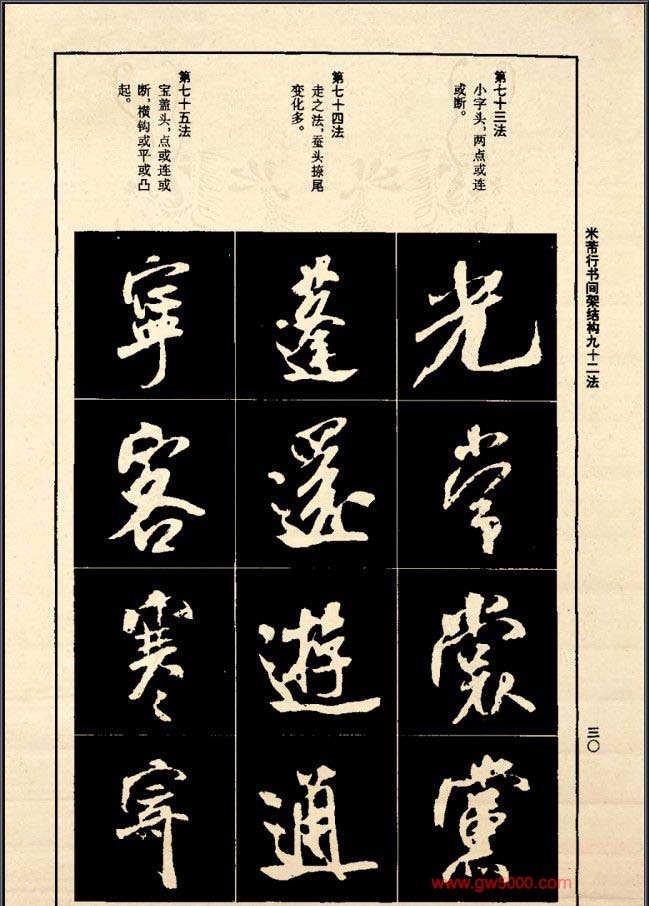 米芾行书间架结构九十二法
三〇
第七十三法
小字头,两点或连
或断。
光
常
裳
黨
第七十四法
走之法,蚕头捺尾
变化多。
蓬
還
遊
通
第七十五法
宝盖头,点或连或
断,横钩或平或凸
起。
寧
客
寒
www.gw5000.com